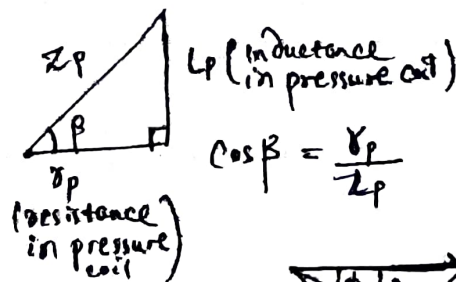 Zp
Lp (inductance
in pressure coil)
β
rp
(resistance
in pressure
coil)
Cos β = rp / Zp